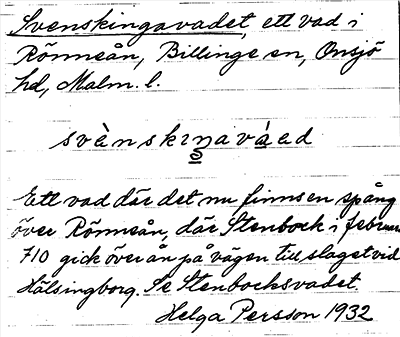 Svenskingavadet, ett vad i
Rönneån, Billinge sn, Onsjö
hd, Malm. l.
svènskiŋaváad
Ett vad där det nu finns en spång
över Rönneån, där Stenbock i februari
710 gick över ån på vägen till slaget vid
Hälsingborg. Se Stenbocksvadet.
Helga Persson 1932